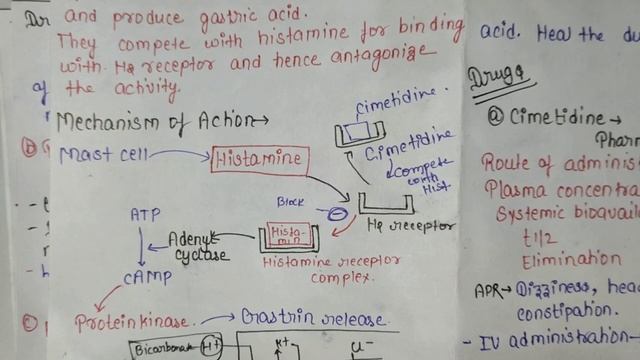 and produce gastric acid.
They compete with histamine for binding
with H2 receptor and hence antagonize
the activity.
Mechanism of Action→
Mast cell
Histamine
cimetidine.
Cimetidine
compete
with
Hist.
Block
H2 receptor
ATP
Adenyl
cyclase
Hista-
min
Histamine receptor
complex.
cAMP
Proteinkinase.
Gastrin release
Bicarbonate
H+
K+
Dr
of
acid. Heal the du
Drugs
@ Cimetidine→
Pharm
Route of adminis
Plasma concentra
Systemic bioavail
t1/2
Elimination
ADR→ Dizziness, head
constipation.
- IV administration-